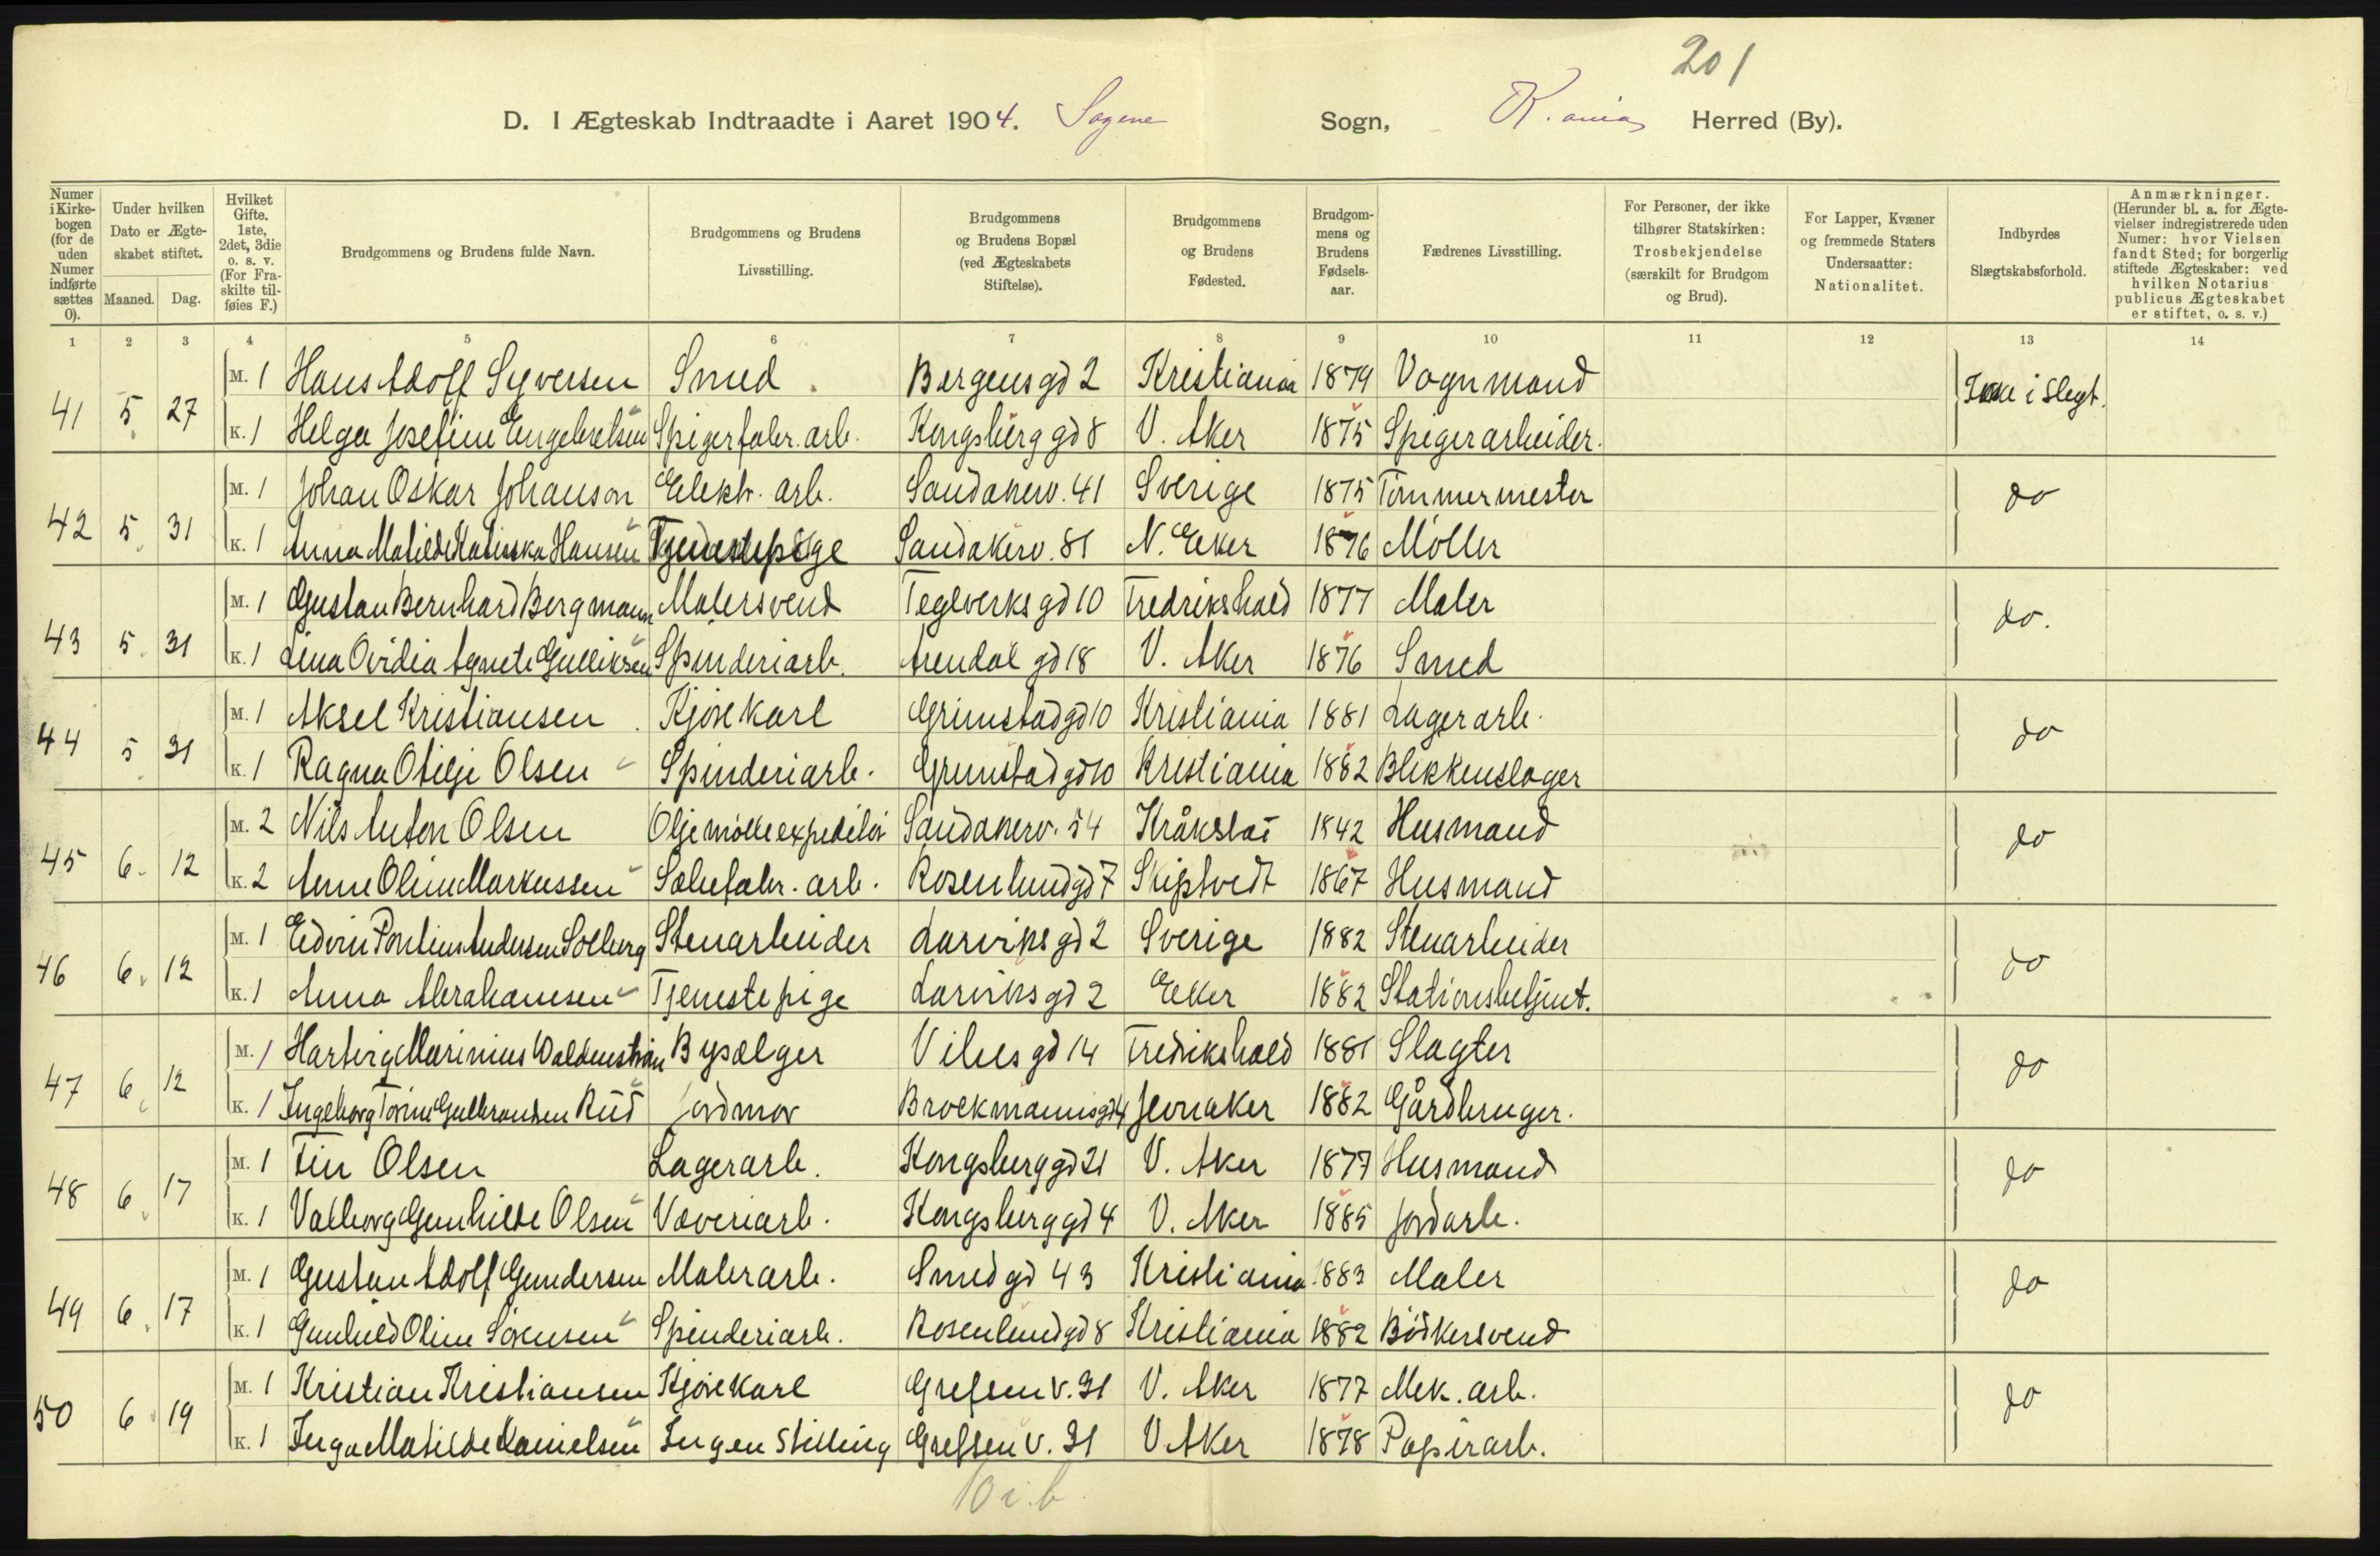 201
D. I Ægteskab Indtraadte i Aaret 1904. Sagene Sogn, K.ania Herred (By).
Numer i Kirkebogen (for de uden Numer indførte sættes 0). | Under hvilken Dato er Ægteskabet stiftet. Maaned. Dag. | Hvilket Gifte. 1ste, 2det, 3die o. s. v. (For Fraskilte tilføies F.) | Brudgommens og Brudens fulde Navn. | Brudgommens og Brudens Livsstilling. | Brudgommens og Brudens Bopæl (ved Ægteskabets Stiftelse). | Brudgommens og Brudens Fødested. | Brudgommens og Brudens Fødselsaar. | Fædrenes Livsstilling. | For Personer, der ikke tilhører Statskirken: Trosbekjendelse (særskilt for Brudgom og Brud). | For Lapper, Kvæner og fremmede Staters Undersaatter: Nationalitet. | Indbyrdes Slægtskabsforhold. | Anmærkninger. (Herunder bl. a. for Ægtevielser indregistrerede uden Numer: hvor Vielsen fandt Sted; for borgerlig stiftede Ægteskaber: ved hvilken Notarius publicus Ægteskabet er stiftet, o. s. v.)
1 2 3 4 5 6 7 8 9 10 11 12 13 14
41 5. 27 M. 1 Hans Adolf Syversen Smed. Bergensgd 2 Kristiania 1879 Vognmand Ikke i Slegt.
K. 1 Helga Josefine Engebretsen Spigerfabr. arb. Kongsberggd 8 V. Aker 1875 Spigerarbeider.
42 5. 31 M. 1 Johan Oskar Johanson Elektr. arb. Sandakerv. 41 Sverige 1875 Tømmermester do
K. 1 Anna Matilde Katinka Hansen Tjenestepige Sandakerv. 81 N. Eker 1876 Møller
43 5. 31 M. 1 Gustav Bernhard Bergmann Malersvend Teglverksgd 10 Fredrikshald 1877 Maler do.
K. 1 Lina Ovidia Agnete Gulliksen Spinderiarb. Arendalgd 18 V. Aker 1876 Smed
44 5. 31 M. 1 Aksel Kristiansen Kjørekarl Grimstadgd 10 Kristiania 1881 Lagerarb. do
K. 1 Ragna Otilje Olsen Spinderiarb. Grimstadgd 10 Kristiania 1882 Blikkenslager
45 6. 12 M. 2 Nils Anton Olsen Oljemølleexpeditør Sandakerv. 54 Kråkstad 1842 Husmand do
K. 2 Anne Oline Markussen Salufabr. arb. Rosenlundgd 7 Skiptvedt 1867 Husmand
46 6. 12 M. 1 Edvin Pontius Andersen Solberg Stenarbeider Larviksgd 2 Sverige 1882 Stenarbeider do
K. 1 Anna Abrahamsen Tjenestepige Larviksgd 2 Eker 1882 Stationsbetjent.
47 6. 12 M. 1 Hartvig Marinius Waldenstrøm Bysælger Vibesgd 14 Fredrikshald 1881 Slagter do
K. 1 Ingeborg Torine Gulbrandsen Rud Jordmor Brockmannsgd 4 Jevnaker 1882 Gårdbruger.
48 6. 17 M. 1 Fin Olsen Lagerarb. Kongsberggd 21 V. Aker 1877 Husmand do
K. 1 Valborg Gunhilde Olsen Væveriarb. Kongsberggd 4 V. Aker 1885 Jordarb.
49 6. 17 M. 1 Gustav Adolf Gundersen Malerarb. Smedgd 43 Kristiania 1883 Maler do
K. 1 Gunhild Oline Sørensen Spinderiarb. Rosenlundgd 8 Kristiania 1882 Bødkersvend
50 6. 19 M. 1 Kristian Kristiansen Kjørekarl Grefsen v. 31 V. Aker 1877 Mek. arb. do
K. 1 Inga Matilde Danielsen Ingen Stilling Grefsen v. 31 V Aker 1878 Papirarb.
10 i.b.